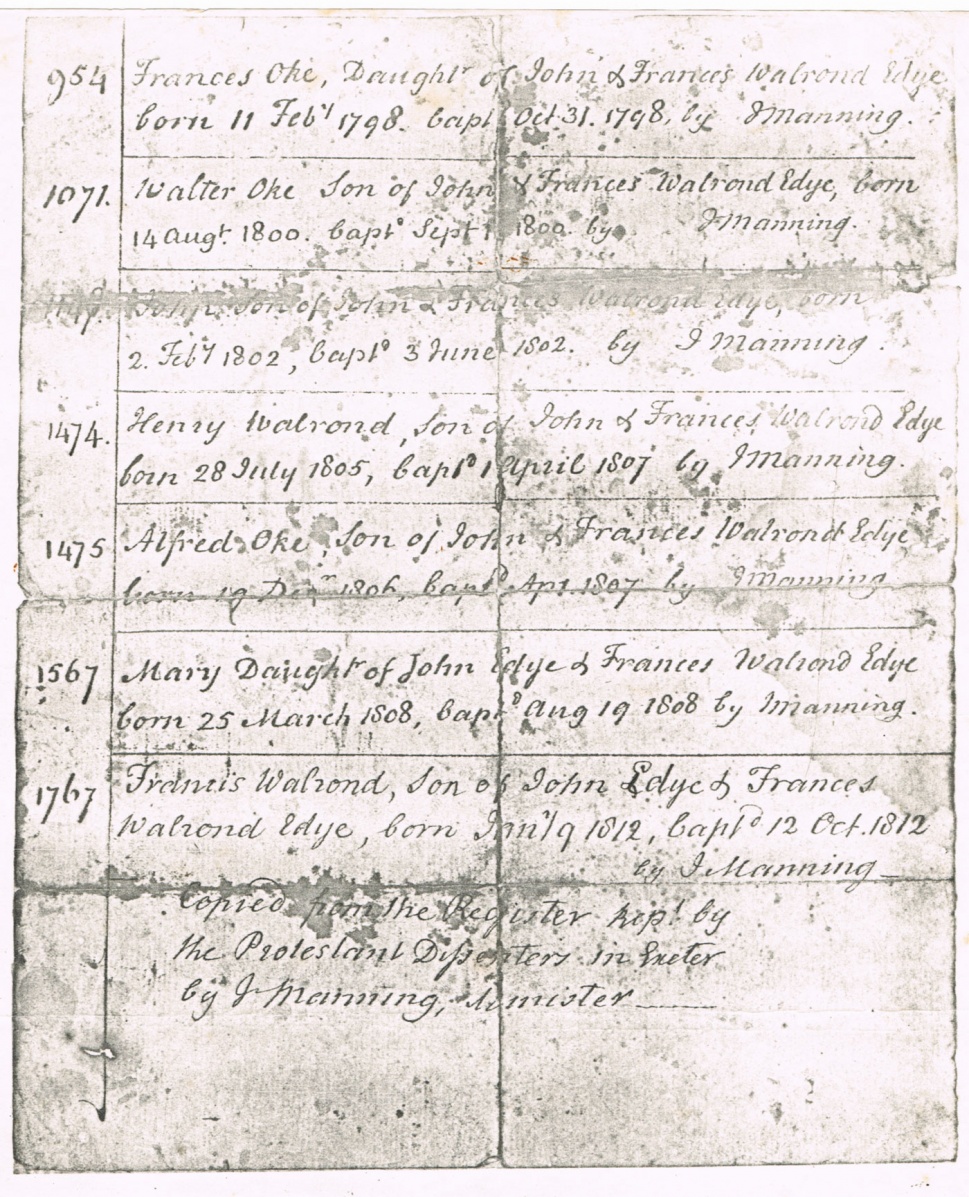 954 Frances Oke, Daughtr of John & Frances Walrond Edye
born 11 Feby 1798. bapt Oct 31. 1798, by J Manning.
1071. Walter Oke Son of John & Frances Walrond Edye, born
14 Augt. 1800. baptd Sept 1 1800. by J Manning.
John, Son of John & Frances Walrond Edye, born
2. Feby 1802, baptd 3 June 1802. by J Manning.
1474. Henry Walrond, Son of John & Frances Walrond Edye
born 28 July 1805, baptd 1 April 1807 by J Manning.
1475 Alfred Oke, Son of John & Frances Walrond Edye
born 19 1806, baptd Apr 1. 1807 by J Manning
1567 Mary Daughtr of John Edye & Frances Walrond Edye
born 25 March 1808, baptd Aug 19 1808 by J Manning.
1767 Francis Walrond, Son of John Edye & Frances
Walrond Edye, born Jany 9 1812, baptd 12 Oct. 1812
by J Manning
Copied from the Register kept by
the Protestant Dissenters in Exeter
by J Manning, Minister